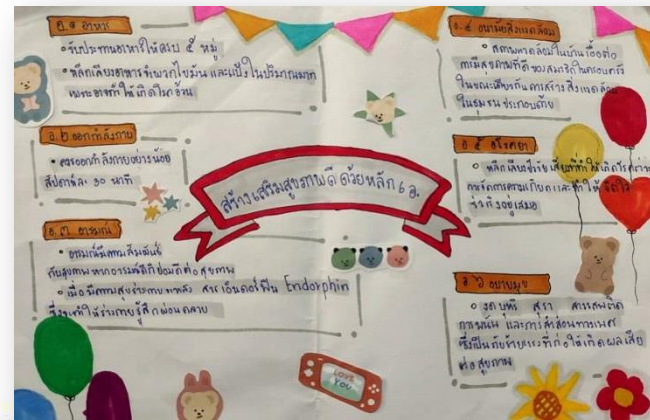 สร้างเสริมสุขภาพดี ด้วยหลัก ๖ อ.
อ.๑ อาหาร
• รับประทานอาหารให้ครบ ๕ หมู่
• หลีกเลี่ยงอาหารจำพวกไขมัน และแป้งในปริมาณมาก
เพราะอาจทำให้เกิดโรคอ้วน
อ.๒ ออกกำลังกาย
• ควรออกกำลังกายอย่างน้อย
สัปดาห์ละ ๓๐ นาที
อ.๓ อารมณ์
• อารมณ์มีความสัมพันธ์
กับสุขภาพหากอารมณ์ดีก็ย่อมดีต่อสุขภาพ
• เมื่อมีความสุขร่างกายจะหลั่ง สารเอ็นดอร์ฟิน Endorphin
ซึ่งจะทำให้ร่างกายรู้สึกผ่อนคลาย
อ.๔ อนามัยสิ่งแวดล้อม
• สภาพแวดล้อมในบ้านเอื้อต่อ
การมีสุขภาพที่ดีของสมาชิกในครอบครัว
ในขณะเดียวกันควรสร้างสิ่งแวดล้อม
ในชุมชน ประกอบด้วย
อ.๕ อโรคยา
• หลีกเลี่ยงปัจจัยเสี่ยงที่ทำให้เกิดโรคต่าง
การจัดการความเครียด และทำให้ จิตใจ
ร่าเริงอยู่เสมอ
อ.๖ อบายมุข
• งดบุหรี่ สุรา สารเสพติด
การพนัน และการสำส่อนทางเพศ
ซึ่งเป็นภัยร้ายแรงที่ก่อให้เกิดผลเสีย
ต่อสุขภาพ
LOVE
YOU